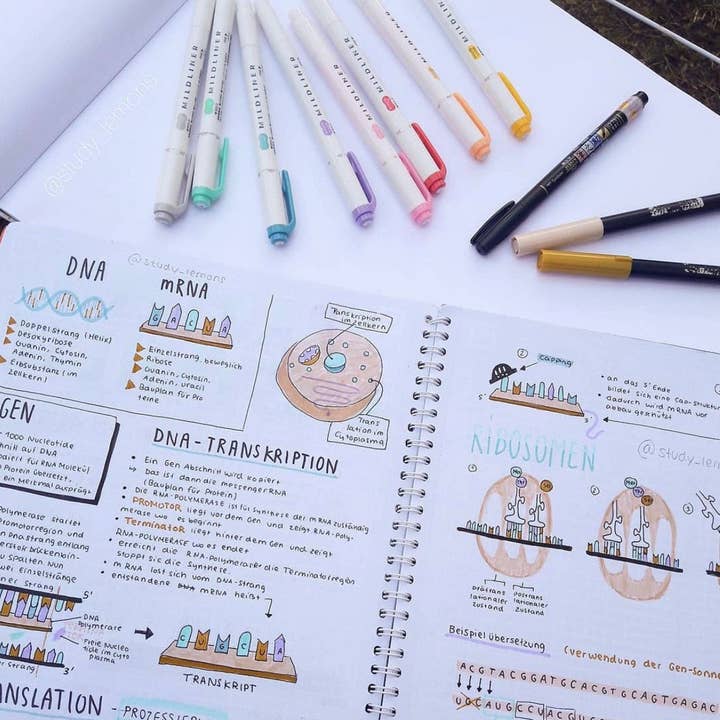 MILDLINER
MILDLINER
MILDLINER
MILDLINER
MILDLINER
MILDLINER
MILDLINER
MILDLINER
@study_lemons
@study_lemons
DNA
Doppelstrang (Helix)
Desoxyribose
Guanin, Cytosin,
Adenin, Thymin
Erbsubstanz (im
Zellkern)
mRNA
G A C U A
Einzelstrang, beweglich
Ribose
Guanin, Cytosin,
Adenin, Uracil
Bauplan für Pro
teine
Transkription
im Zellkern
Trans
lation im
Cytoplasma
GEN
1000 Nucleotide
auf DNA
für RNA Molekül
Protein übersetzt,
ein Merkmal ausprägt
Polymerase startet
Promotorregion und
DNA strang entlang
zu spalten. Nun
zwei Einzelstränge
5'
DNA
Polymerase
Freie Nucleo
tide im Cyto
plasma
3'
DNA-TRANSKRIPTION
Ein Gen Abschnitt wird kopiert
↳ Das ist dann die messengerRNA
(Bauplan für Protein)
Die RNA-POLYMERASE ist für Synthese der mRNA zuständig
PROMOTOR liegt vor dem Gen und zeigt RNA-Poly-
merase wo es beginnt
Terminator liegt hinter dem Gen und zeigt
RNA-POLYMERASE wo es endet
erreicht die RNA-Polymerase die Terminatorregion
stoppt sie die Synthese.
mRNA löst sich vom DNA-Strang
entstandene mRNA heißt
G U G C U A
TRANSKRIPT
TRANSLATION - PROZESSIER
② Capping
5'
3'
an das 5' Ende
bildet sich eine Cap-Struktur
dadurch wird mRNA vor
abbau geschützt
RIBOSOMEN
@study_lem
① ② ③
prätrans
lationaler
zustand
posttrans
lationaler
zustand
Beispiel übersetzung (verwendung der Gen-Sonn
ACGTACGGATGCACGTGCAGTGAGAC
UGCAUGCCUACG